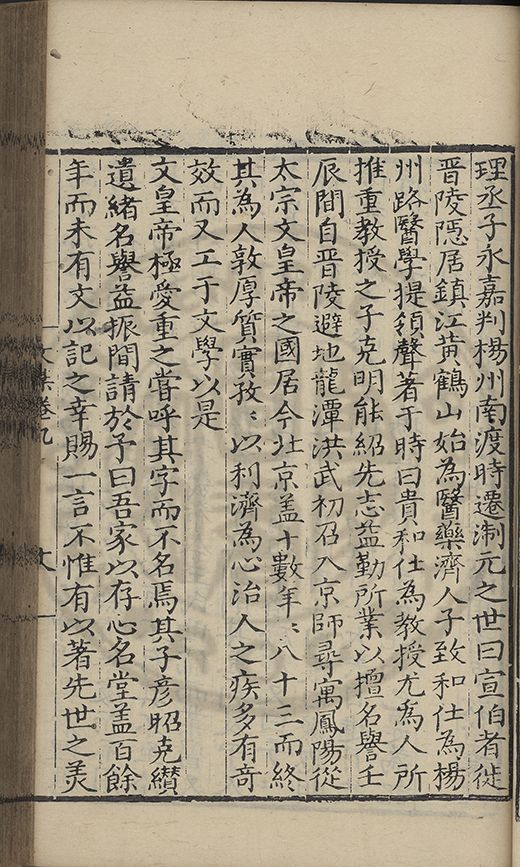 理丞子永嘉判楊州南渡時遷淛元之世曰宣伯者徙
晋陵隱居鎮江黃鶴山始為醫藥濟人子致和仕為楊
州路醫學提領聲著于時曰貴和仕為教授尤為人所
推重教授之子克明能紹先志益勤所業以擅名譽壬
辰間自晋陵避地龍潭洪武初召入京師尋寓鳳陽從
太宗文皇帝之國居今北京盖十數年〻八十三而終
其為人敦厚質實孜〻以利濟為心治人之疾多有奇
效而又工于文學以是
文皇帝極愛重之嘗呼其字而不名焉其子彥昭克纘
遺緒名譽益振間請於予曰吾家以存心名堂盖百餘
年而未有文以記之幸賜一言不惟有以著先世之羙
文集卷九